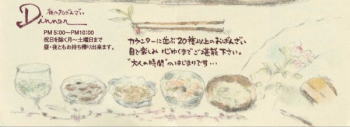 夜のおばんざい
Dinner
PM 5:00～PM10:00
祝日を除く月～土曜日まで
昼・夜ともお持ち帰り出来ます。
カウンターに並ぶ20種以上のおばんざい
目で楽しみ じっくりとご堪能下さい。
"大人の時間"のはじまりです…